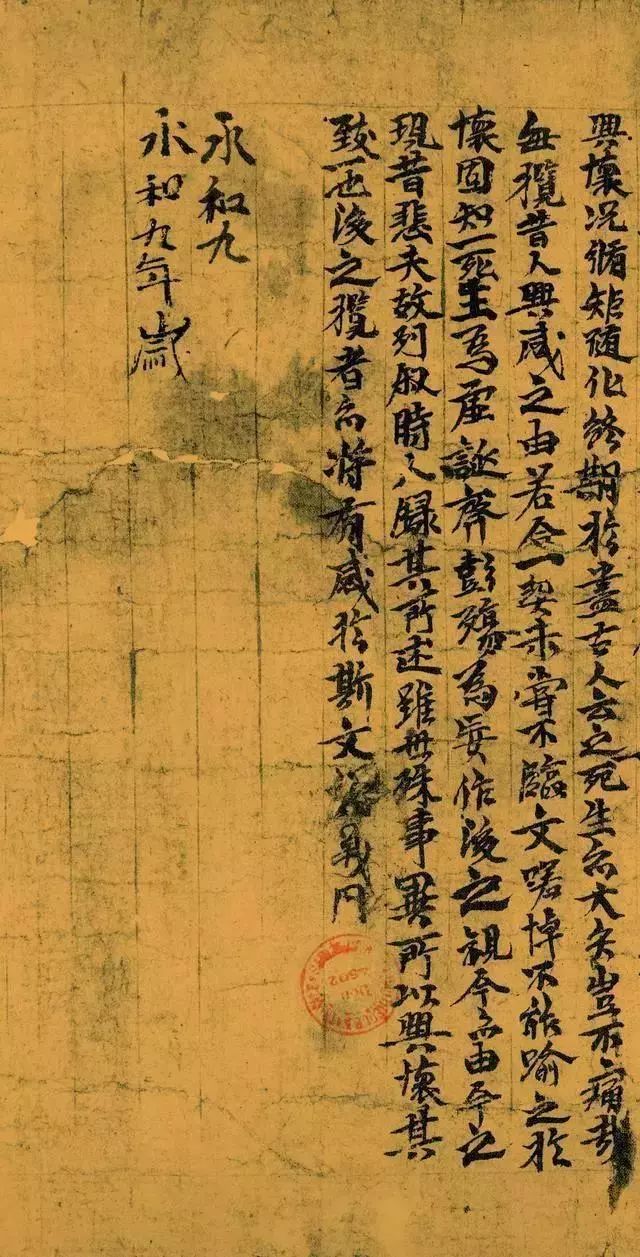 興懷况脩矩随化終期於盡古人云之死生亦大矣豈不痛哉
每攬昔人興感之由若合一契未甞不臨文嗟悼不能踰之於
懷固知一死生為虛誕齊彭殤為妄作後之視今亦由今之
視昔悲夫故列叙時人錄其所述雖世殊事異所以興懷其
致一也後之攬者亦將有感於斯文
永和九
永和九年歲